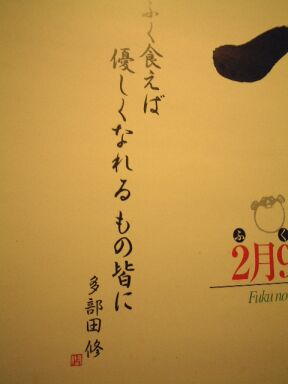 ふく食えば
優しくなれる もの皆に
多部田 修
ふく
2月9
Fuku no